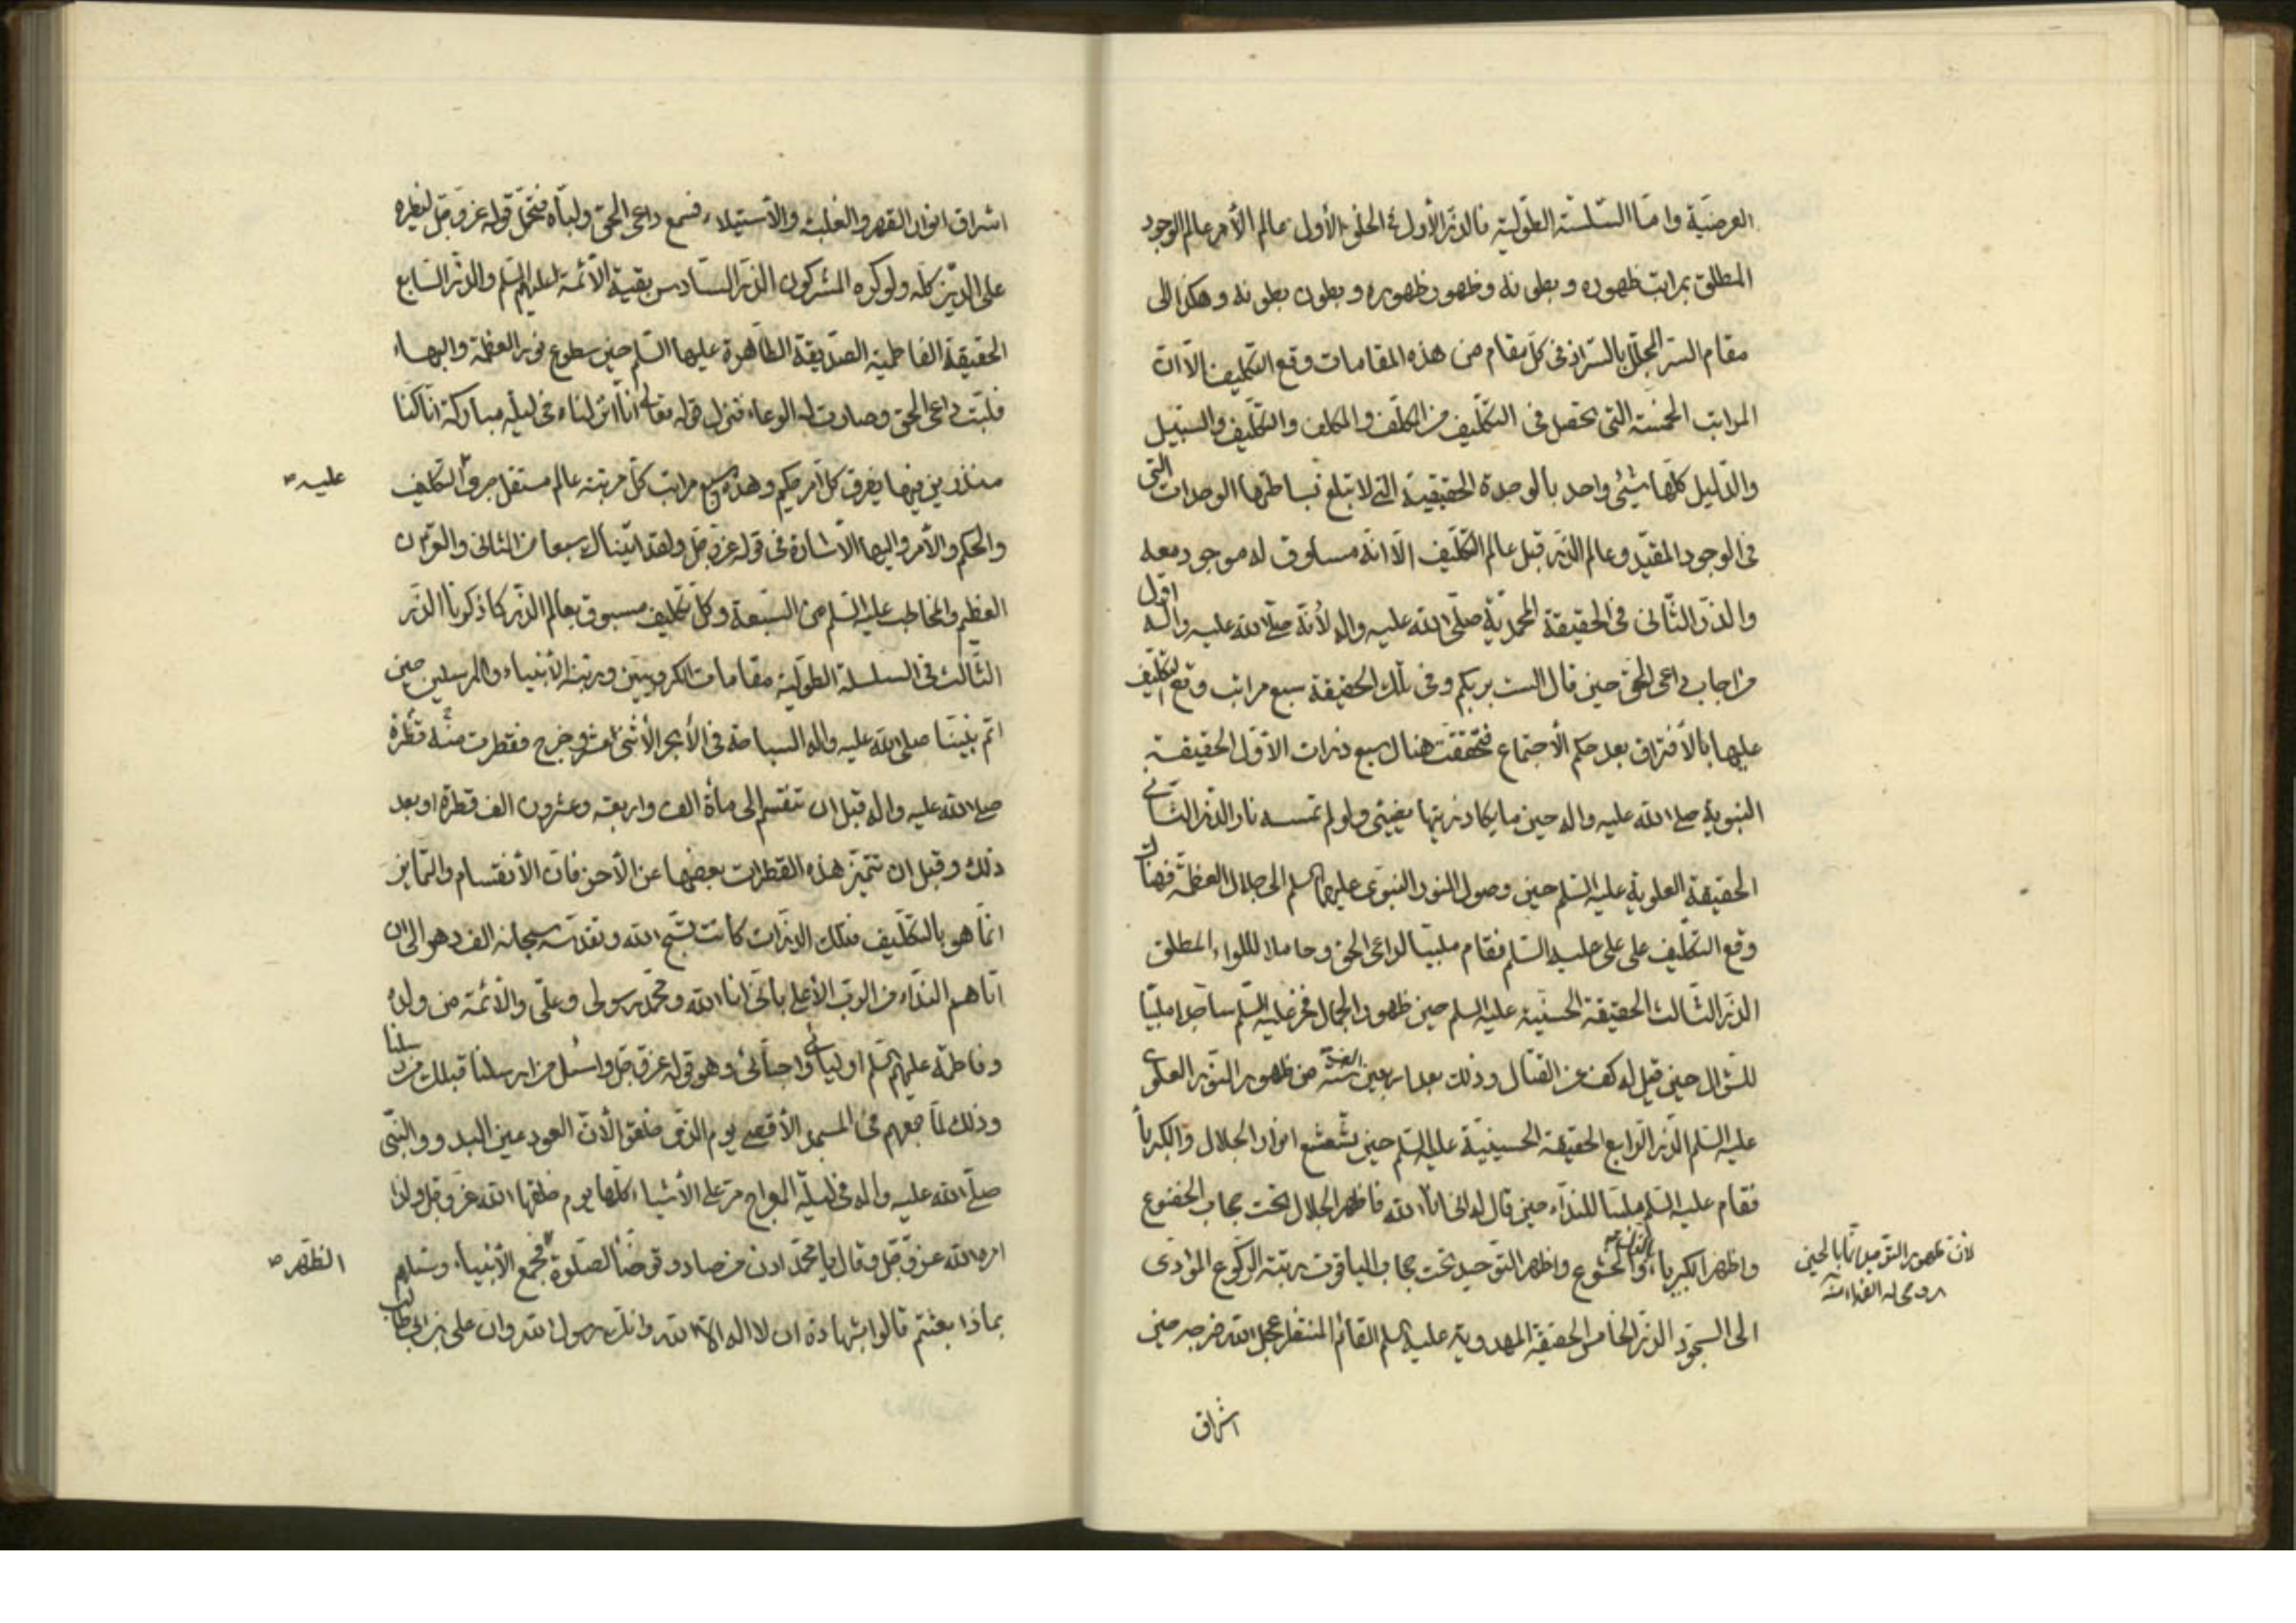 العرضية واما السلسلة الطولية فالذر الأول في الخلق الأول عالم الأمر عالم الوجود
المطلق بمراتب ظهوره و بطونه و ظهور ظهوره و بطون بطونه و هكذا الى
مقام السر المجلل بالسر اذ في كل مقام من هذه المقامات وقع التكليف الا ان
المراتب الخمسة التي تحصل في التكليف من المكلِّف و المكلَّف والتكليف والسبيل
والدليل كلها شيئ واحد بالوحدة الحقيقية التي لا تبلغ بساطتها الوحدات التي
في الوجود المقيد وعالم الذر قبل عالم التكليف الا انه مساوق له موجود معه
والذر الثاني في الحقيقة المحمدية صلى الله عليه واله لأنه صلى الله عليه واله اول
من اجاب داعي الحق حين قال الست بربكم و في تلك الحقيقة سبع مراتب وقع التكليف
عليها بالأفتراق بعد حكم الأجتماع فتحققت هنالك سبع ذرات الأول الحقيقة
النبوية صلى الله عليه واله حين ما يكاد زيتها يضيئ ولو لم تمسسه نار الذر الثاني
الحقيقة العلوية عليه السلم حين وصول النور النبوي عليهما السلم الى جلال العظمة فهناك
وقع التكليف على علي عليه السلم فقام ملبيا لداعي الحق و حاملا للواء المطلق
الذر الثالث الحقيقة الحسنية عليه السلم حين ظهور الجمال فخر عليه السلم ساجدا ملبيا
للسؤال حين قيل له كف عن القتال و ذلك بعد اربعين الف سنة من ظهور النور العلوي
عليه السلم الذر الرابع الحقيقة الحسينية عليه السلم حين تشعشع انوار الجلال والكبرياء
فقام عليه السلم ملبيا للنداء حين قال له اني انا الله فاظهر الجلال تحت حجاب الخضوع
واظهر الكبرياء والخشوع واظهر التوحيد تحت حجاب الياقوت رتبة الركوع المؤدى
الى السجود الذر الخامس الحقيقة المهدوية عليه السلم القائم المنتظر عجل الله فرجه حين
لان ظهور التوحيد انما بالحين
روحي له الفداء
اشراق
اشراق انوار القهر والغلبة والأستيلاء فسمع داعي الحق ولباه فتحمل قوله عز وجل ليظهره
على الدين كله ولو كره المشركون الذر السادس بقية الأئمة عليهم السلم والذر السابع
الحقيقة الفاطمية الصديقة الطاهرة عليها السلم حين سطوع نور العظمة والبهاء
فلبت داعي الحق وصارت له الوعاء فنزل قوله تعالى انا انزلناه في ليلة مباركة انا كنا
منذرين فيها يفرق كل امر حكيم وهذه سبع مراتب كل مرتبة عالم مستقل جرى التكليف
عليه
والحكم والأمر واليها الأشارة في قوله عز وجل ولقد اتيناك سبعا من المثاني والقران
العظيم والمخاطب عليه السلم من السبعة و كل تكليف مسبوق بعالم الذر كما ذكرنا الذر
الثالث في السلسلة الطولية مقامات الكروبيين ورتبة الأنبياء والمرسلين حين
اتم نبينا صلى الله عليه واله السباحة في الأبحر الأثنى عشر و خرج فقطرت منه قطرة
صلى الله عليه واله قبل ان تنقسم الى مأة الف واربعة وعشرون الف قطرة او بعد
ذلك وقبل ان تتميز هذه القطرات بعضها عن الأخر فان الأنقسام والتمايز
انما هو بالتكليف فتلك الذرات كانت تسبح الله وتقدسه سبحانه الف دهر الى ان
اتاهم النداء من الرب الأعلى باني انا الله و محمد رسولي و علي والأئمة من ولده
وفاطمة عليهم السلم اوليائي واحبائي وهو قوله عز وجل واسئل من ارسلنا قبلك من رسلنا
وذلك لما جمعهم في المسجد الأقصى يوم الذي خلق لأن العود عين البدو والنبي
صلى الله عليه واله في ليلة المعراج مر على الأشياء كلها يوم خلقها الله عز وجل ولذا
امره الله عز وجل وقال يا محمد ادن من صاد و توضأ لصلوة فجمع الأنبياء وسئلهم
الظهر
بماذا بعثتم قالوا بشهادة ان لا اله الا الله وانك رسول الله وان علي بن ابيطالب